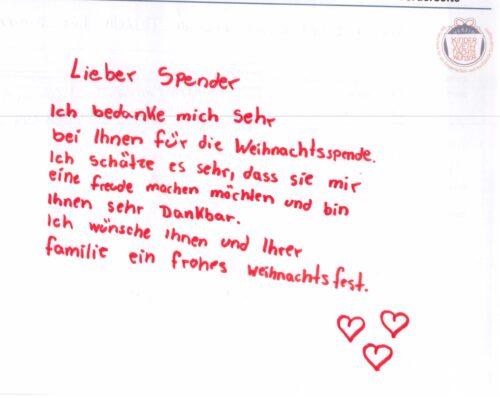 Lieber Spender
Ich bedanke mich sehr
bei Ihnen für die Weihnachtsspende.
Ich schätze es sehr, dass sie mir
eine freude machen möchten und bin
Ihnen sehr Dankbar.
Ich wünsche Ihnen und Ihrer
familie ein frohes weihnachtsfest.
KINDER
WEIH
NACHTS
WUNSCH